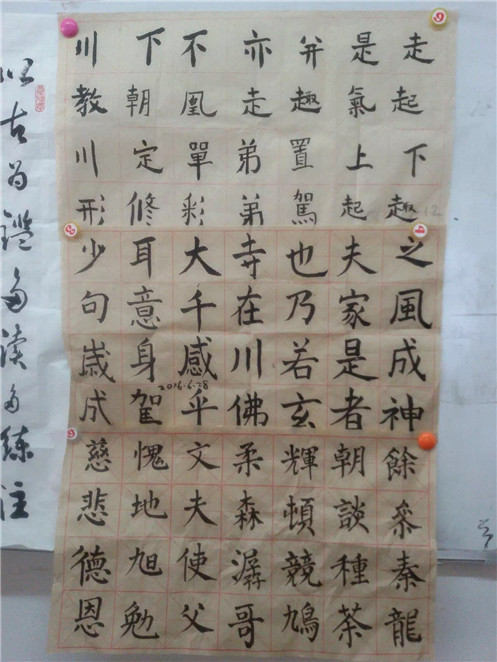 走起下趣
是氣上起
并趣置駕
亦走弟弟
不凰單彩
下朝定修
川教川形
12
之風成神
夫家是者
也乃若玄
寺在川佛
大千感乎
耳意身
少句歲成
2016.6.28
餘叅秦龍
朝談種茶
輝頓競鳩
柔森潺哥
文夫使父
愧地旭勉
慈悲德恩
以古为鑑多读多练注